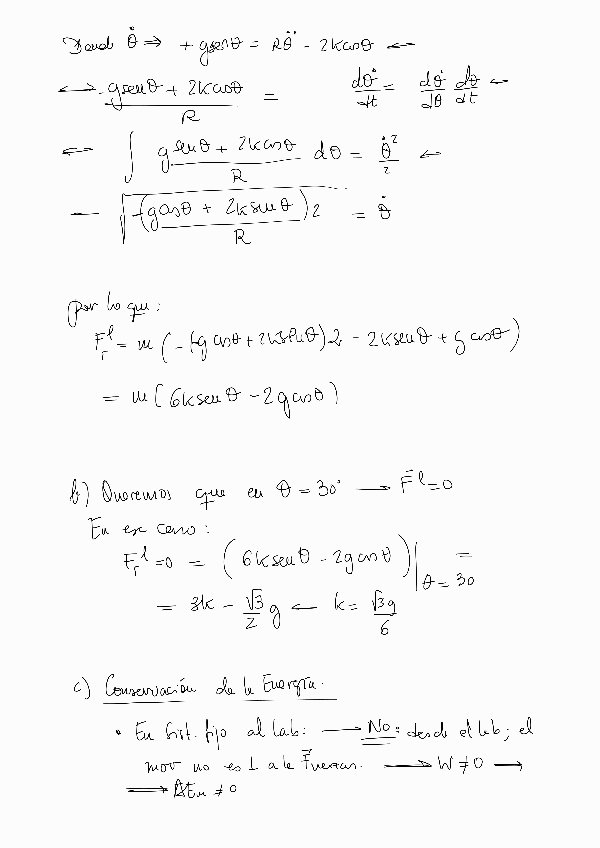 θ̇ ⇒ + g sen θ = Rθ̈ - 2k cos θ ←
↔ (g sen θ + 2k cos θ)/R = dθ̇/dt = dθ̇/dθ dθ/dt ←
← ∫ (g sen θ + 2k cos θ)/R dθ = θ̇²/2 ←
— √((-g cos θ + 2k sen θ)2/R) = θ̇
por lo que:
F_r^l = m(-(-g cos θ + 2k sen θ)2 - 2k sen θ + g cos θ)
= m(6k sen θ - 2g cos θ)
b) Queremos que en θ = 30° → F^l = 0
En ese caso:
F_r^l = 0 = (6k sen θ - 2g cos θ)|θ = 30 =
= 3k - √3/2 g ← k = √3g/6
c) Conservación de la Energía.
• En Sist. fijo al lab: → No: desde el lab; el
mov no es ⊥ a la Fuerzas. → W ≠ 0 →
→ ΔEm ≠ 0